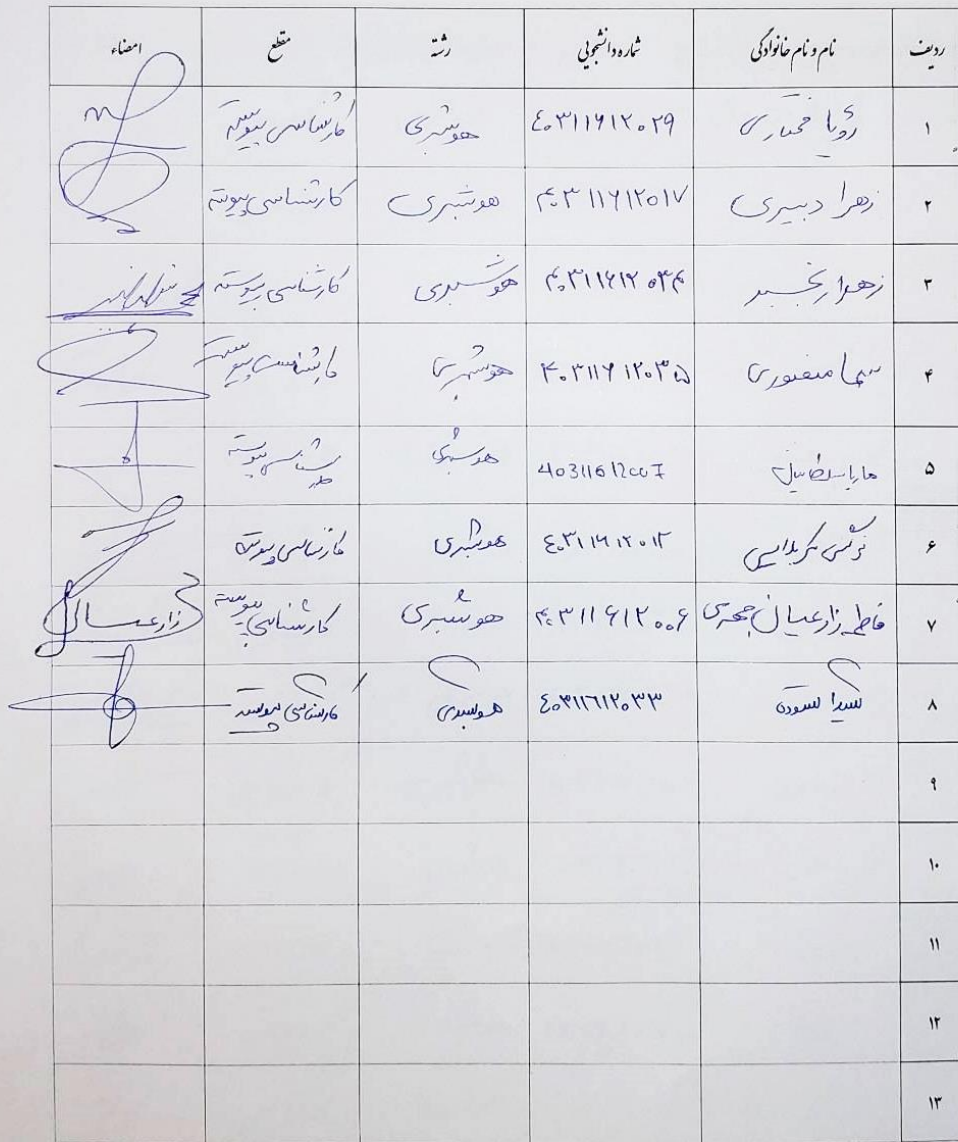 ردیف نام و نام خانوادگی شماره دانشجویی رشته مقطع امضاء
۱ رؤیا مختاری ۴۰۳۱۱۶۱۲۰۲۹ هوشبری کارشناسی پیوسته
۲ زهرا دبیری ۴۰۳۱۱۶۱۲۰۱۷ هوشبری کارشناسی پیوسته
۳ زهرا رنجبر ۴۰۳۱۱۶۱۲۰۳۴ هوشبری کارشناسی پیوسته
۴ سما منصوری ۴۰۳۱۱۶۱۲۰۳۵ هوشبری کارشناسی پیوسته
۵ 40311612007 هوشبری کارشناسی پیوسته
۶ نرگس کربلایی ۴۰۳۱۱۶۱۲۰۱۲ هوشبری کارشناسی پیوسته
۷ فاطمه زارعیان جهرمی ۴۰۳۱۱۶۱۲۰۰۶ هوشبری کارشناسی پیوسته
۸ ستوده ۴۰۳۱۱۶۱۲۰۳۳ هوشبری کارشناسی پیوسته
۹
۱۰
۱۱
۱۲
۱۳